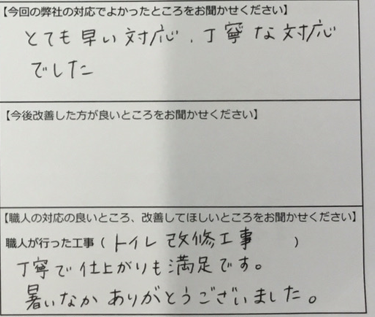 【今回の弊社の対応でよかったところをお聞かせください】
とても早い対応、丁寧な対応
でした
【今後改善した方が良いところをお聞かせください】
【職人の対応の良いところ、改善してほしいところをお聞かせください】
職人が行った工事（トイレ改修工事）
丁寧で仕上がりも満足です。
暑いなかありがとうございました。